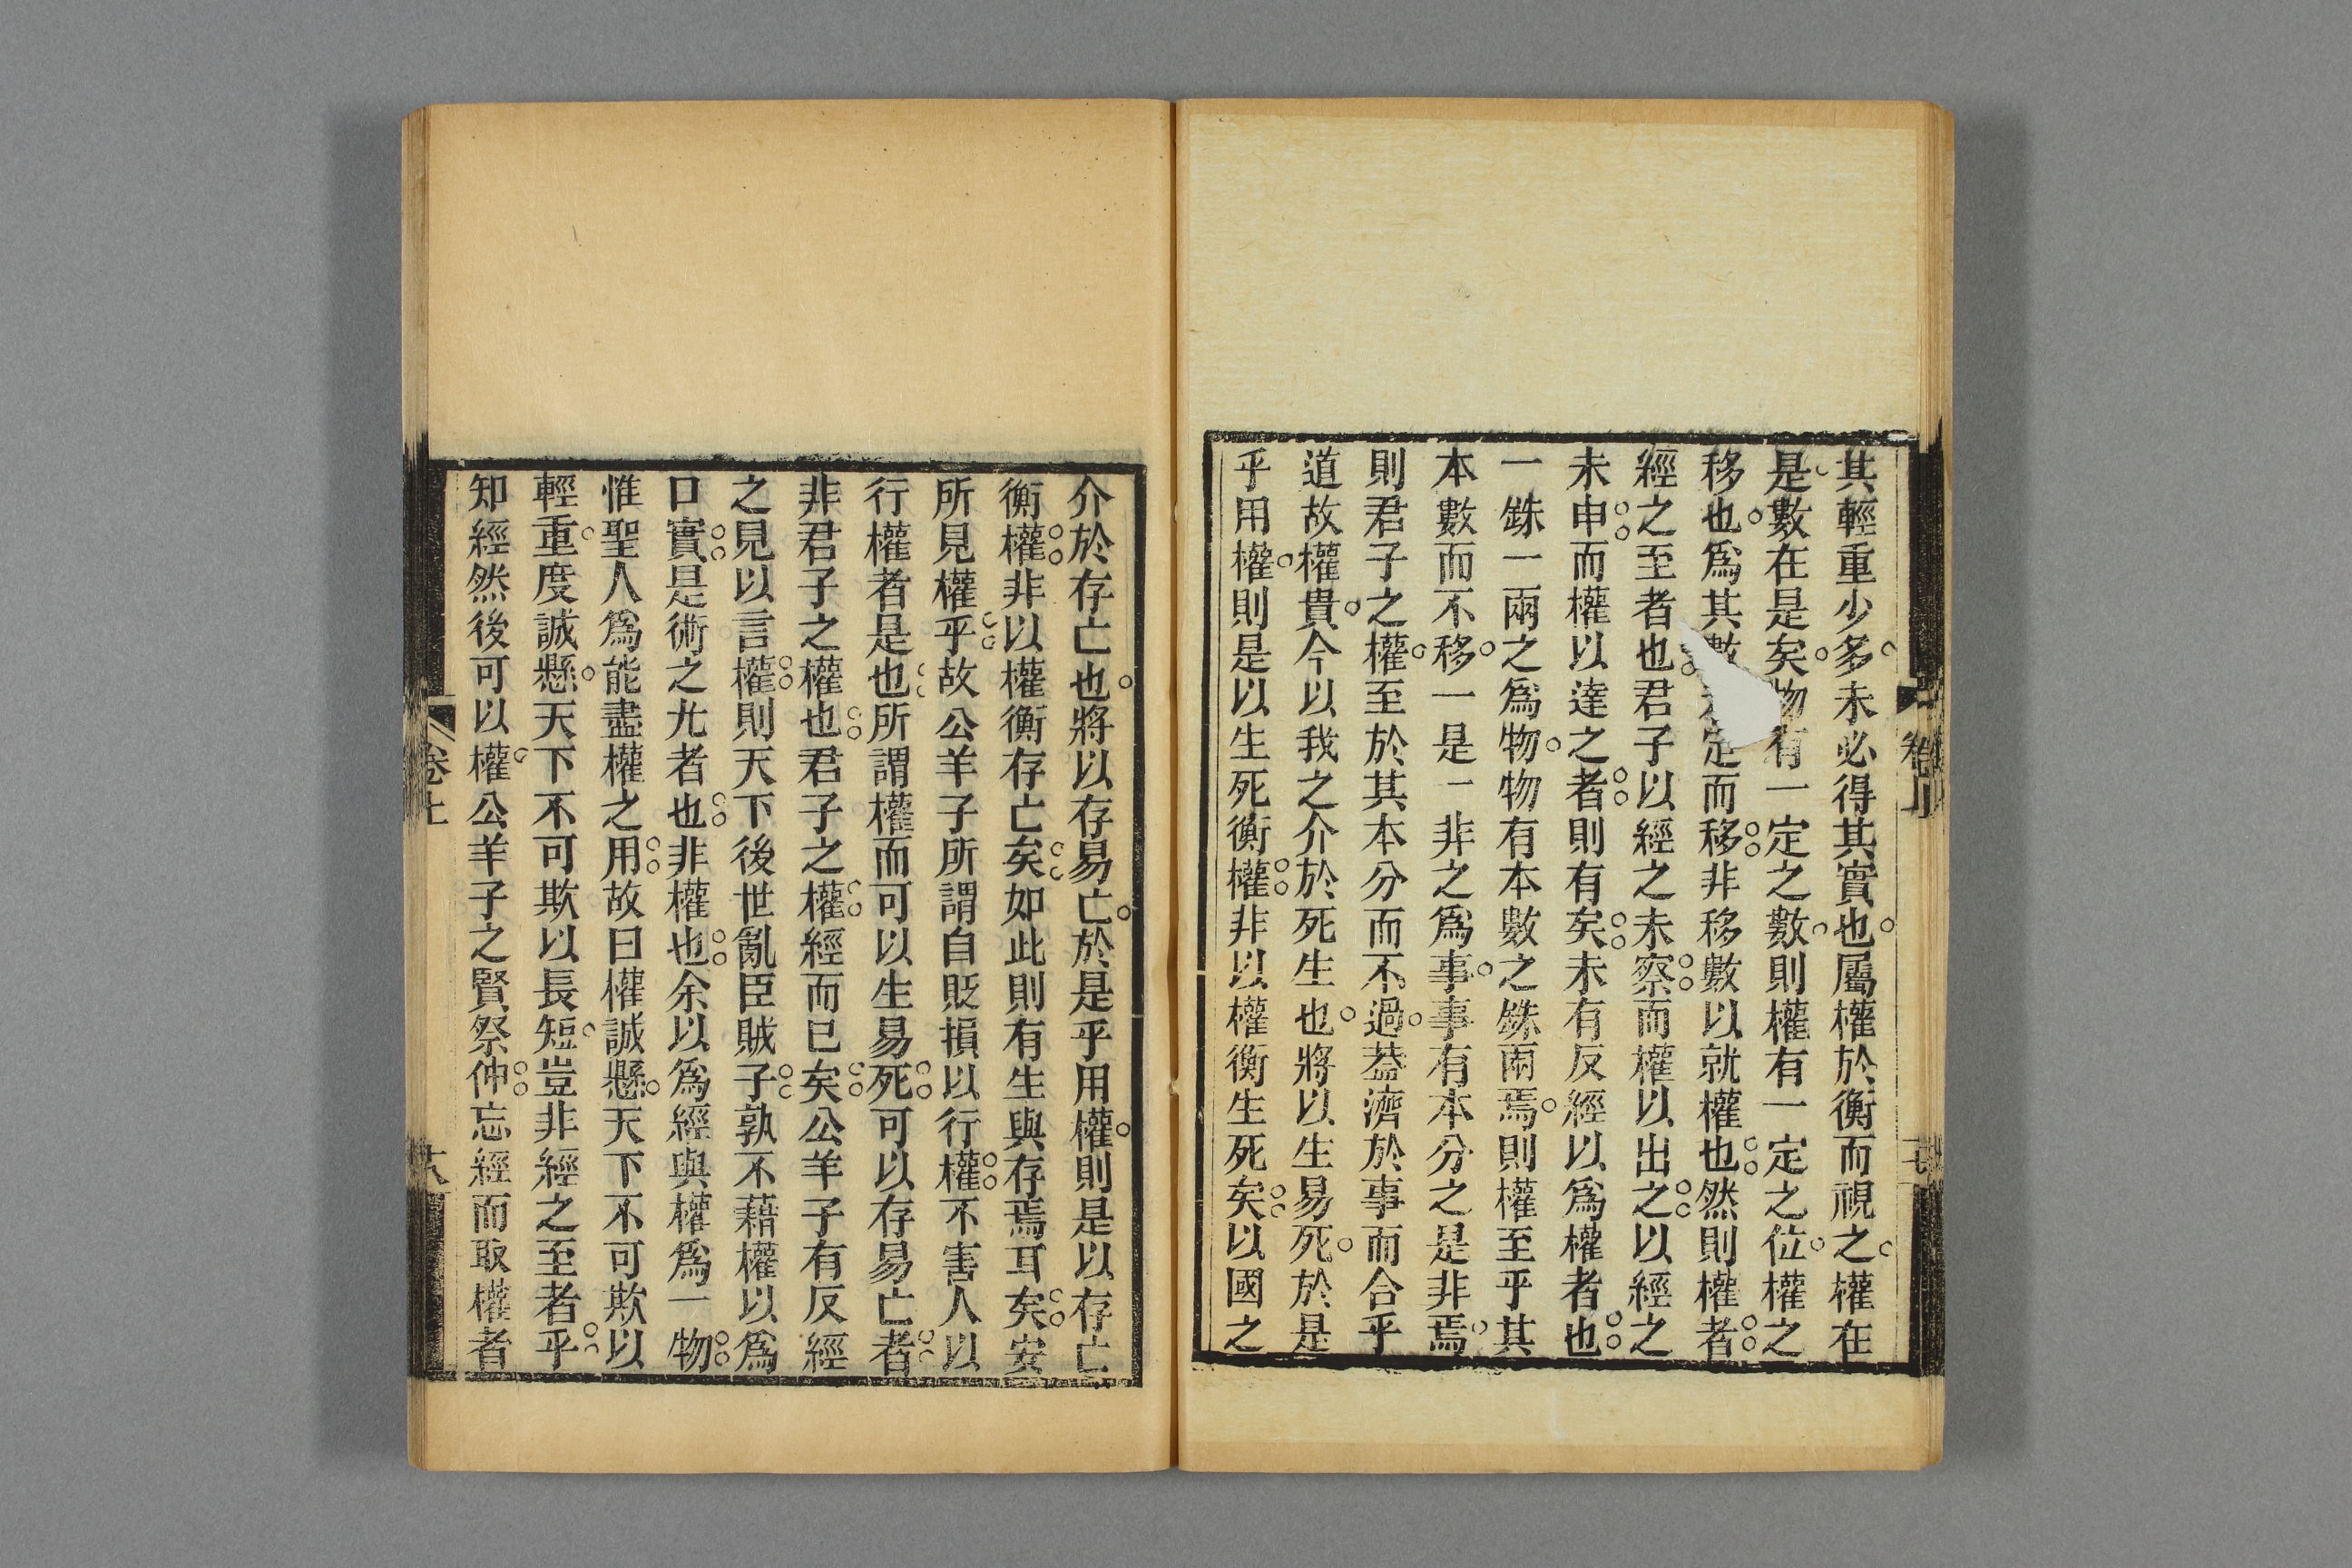 其輕重少多未必得其實也屬權於衡而視之權在
是數在是矣物有一定之數則權有一定之位權之
移也爲其數定而移非移數以就權也然則權者
經之至者也君子以經之未察而權以出之以經之
未申而權以達之者則有矣未有反經以爲權者也
一銖一兩之爲物物有本數之銖兩焉則權至乎其
本數而不移一是一非之爲事事有本分之是非焉
則君子之權至於其本分而不過葢濟於事而合乎
道故權貴今以我之介於死生也將以生易死於是
乎用權則是以生死衡權非以權衡生死矣以國之
介於存亡也將以存易亡於是乎用權則是以存亡
衡權非以權衡存亡矣如此則有生與存焉耳矣安
所見權乎故公羊子所謂自貶損以行權不害人以
行權者是也所謂權而可以生易死可以存易亡者
非君子之權也君子之權經而已矣公羊子有反經
之見以言權則天下後世亂臣賊子孰不藉權以爲
口實是術之尤者也非權也余以爲經與權爲一物
惟聖人爲能盡權之用故曰權誠懸天下不可欺以
輕重度誠懸天下不可欺以長短豈非經之至者乎
知經然後可以權公羊子之賢祭仲忘經而取權者
卷上
六